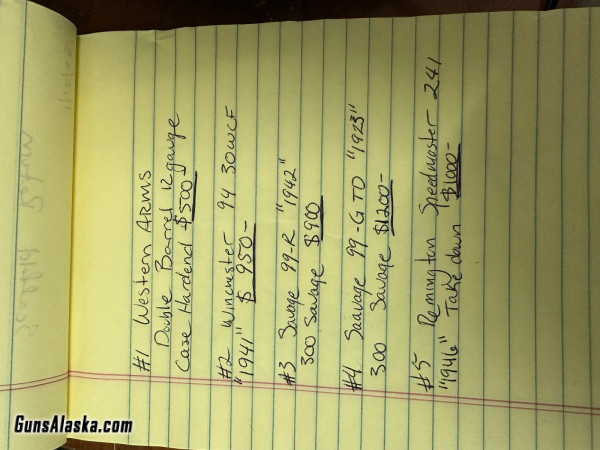 #1 Western Arms
Double Barrel 12 gauge
Case Hardend $500-
#2 Winchester 94 30WCF
"1941" $950-
#3 Savage 99-R "1942"
300 Savage $900
#4 Saavage 99-G TD "1923"
300 Savage $1200-
#5 Remington Speedmaster 241
"1946" Take down $1000-
GunsAlaska.com